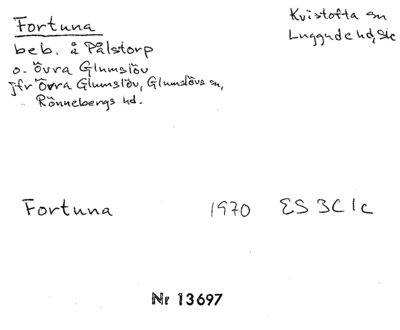 Fortuna
beb. å Pålstorp
o. Övra Glumslöv
jfr Övra Glumslöv, Glumslövs sn,
Rönnebergs hd.
Kvistofta sn
Luggude hd, Sk
Fortuna 1970 ES 3C 1c
Nr 13697